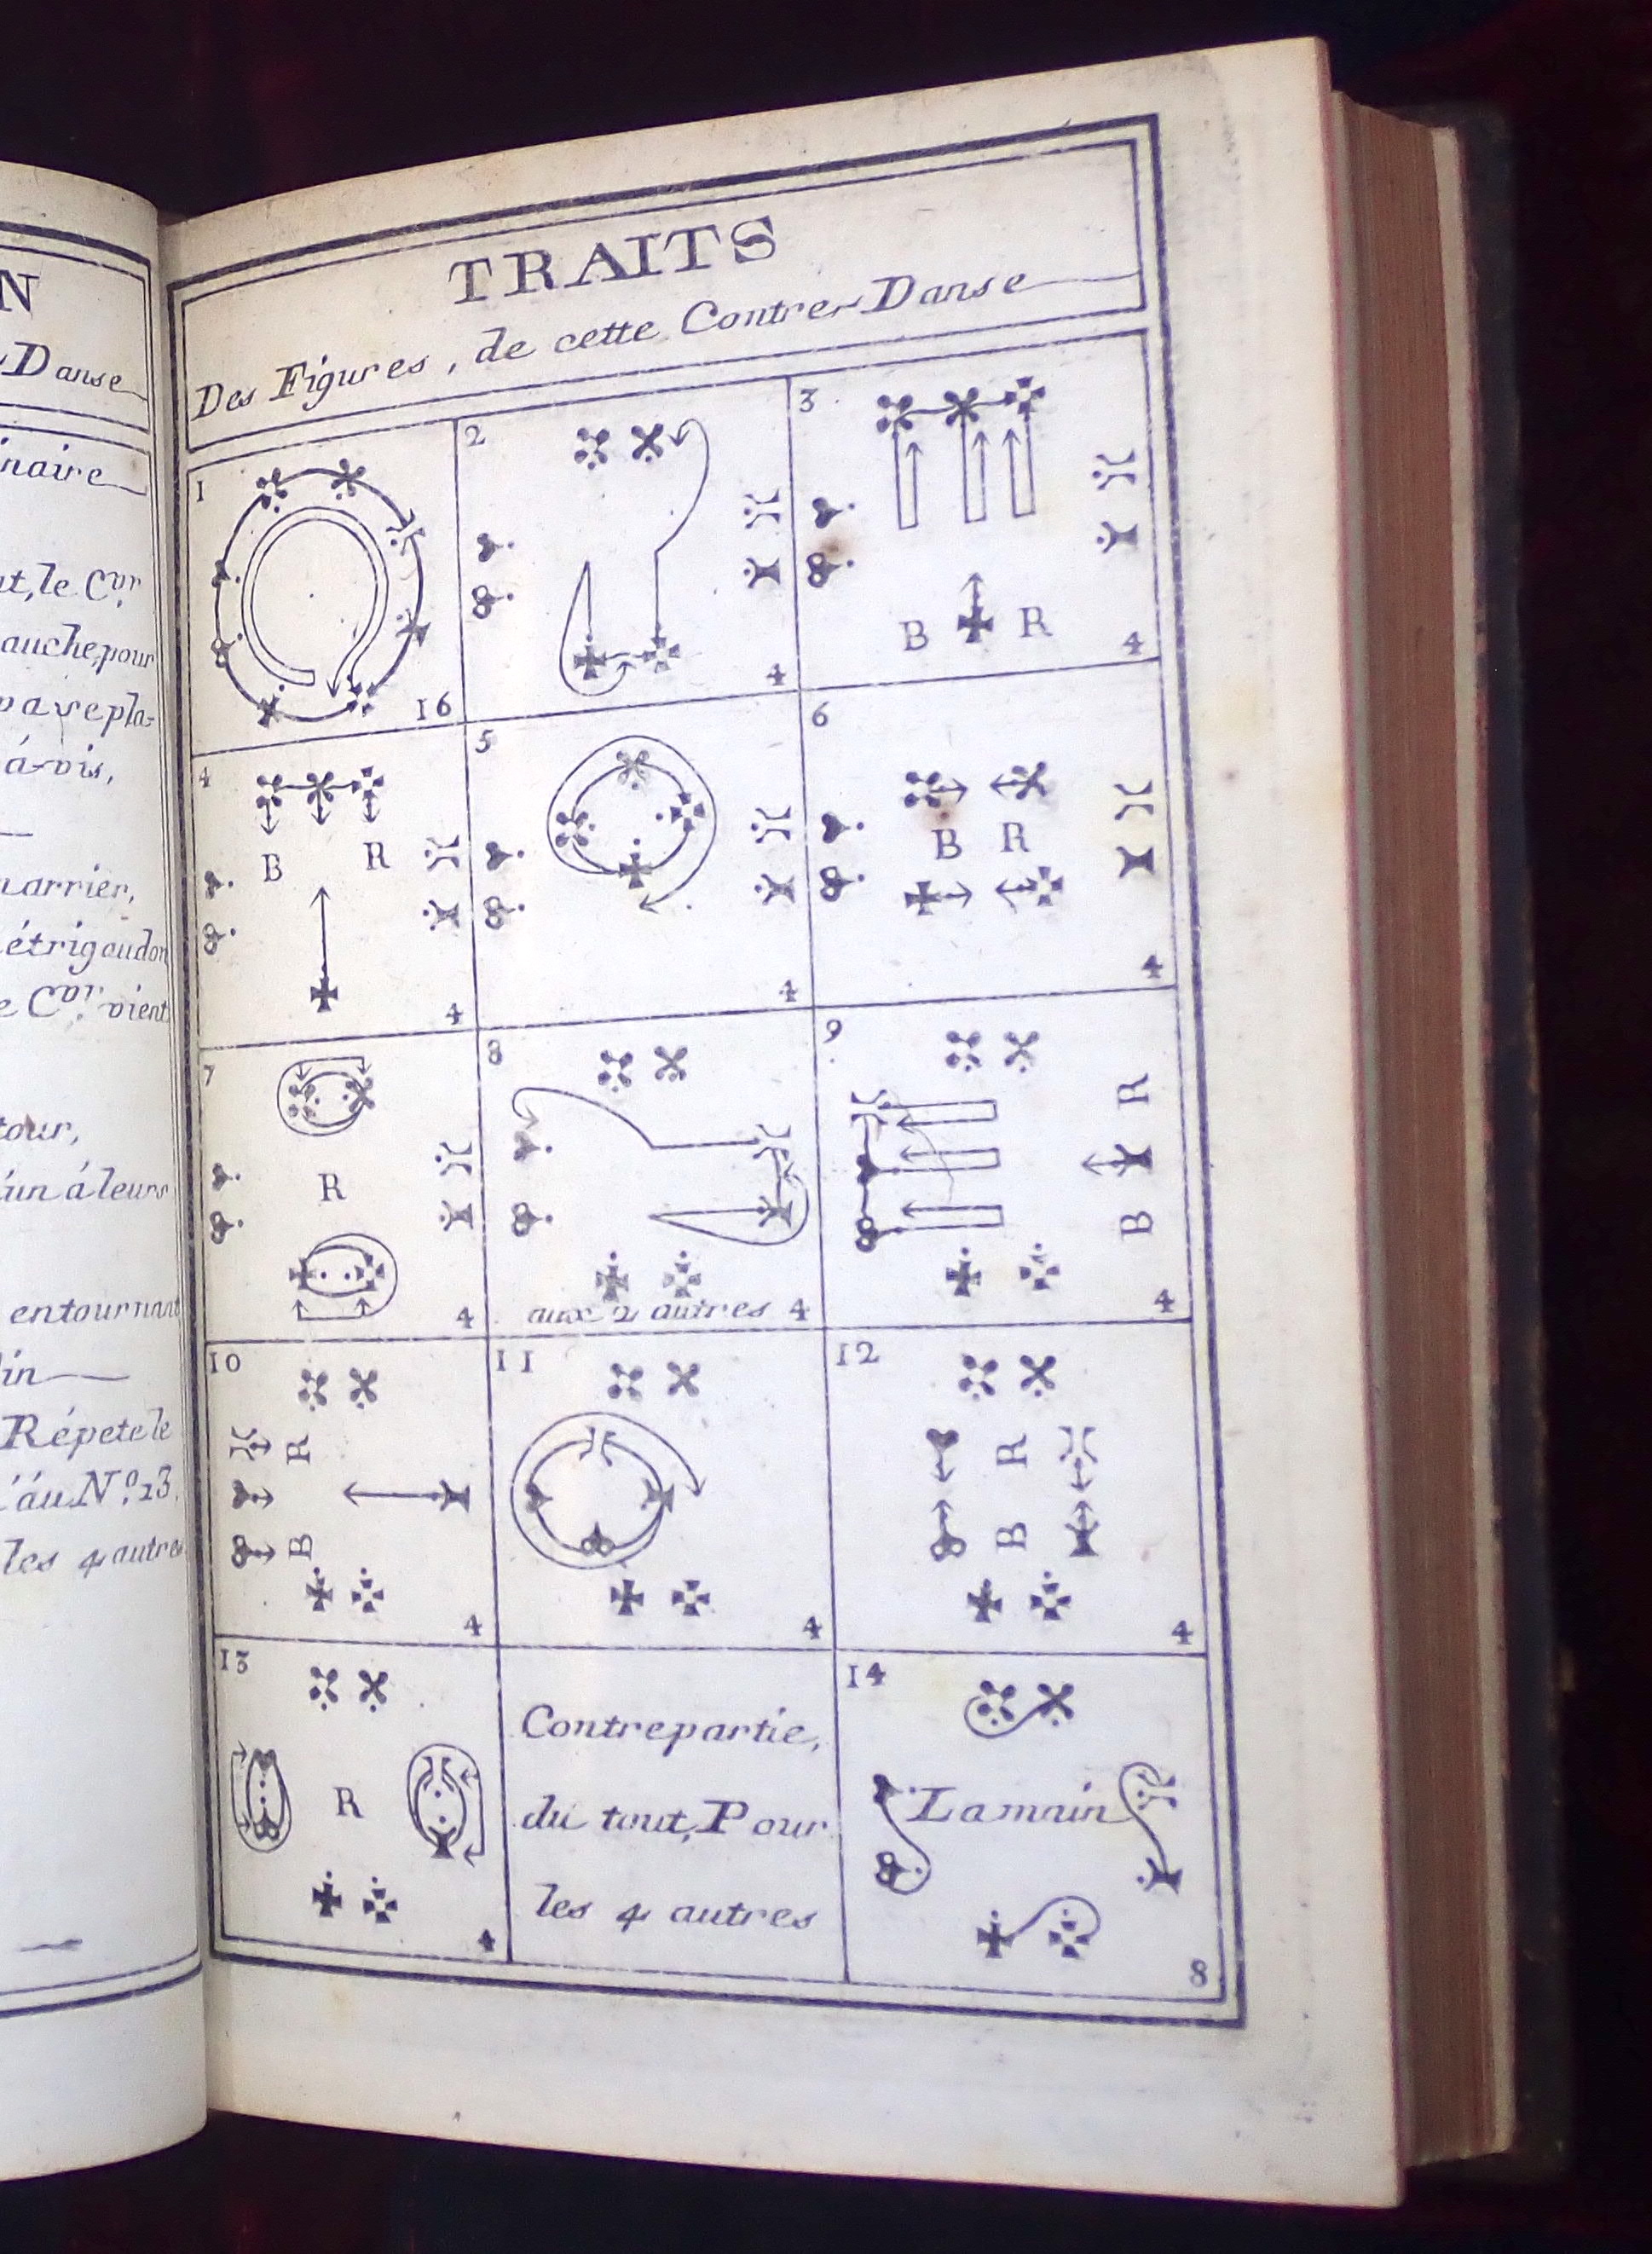 N
Danse
naire
t, le C.vr
auche, pour
parepla-
á-vis,
narrier,
étrigaudon
e C.vr vient
tour,
un á leurs
entournant
in
Répete le
áu N.º 13.
les 4 autres
TRAITS
Des Figures, de cette Contre-Danse
1
16
2
4
3
B R
4
4
B R
4
5
4
6
B R
4
7
R
4
8
aux 2 autres 4
9
R
B
4
10
R
B
4
11
4
12
R
B
4
13
R
4
Contrepartie,
du tout, Pour
les 4 autres
14
La main
8